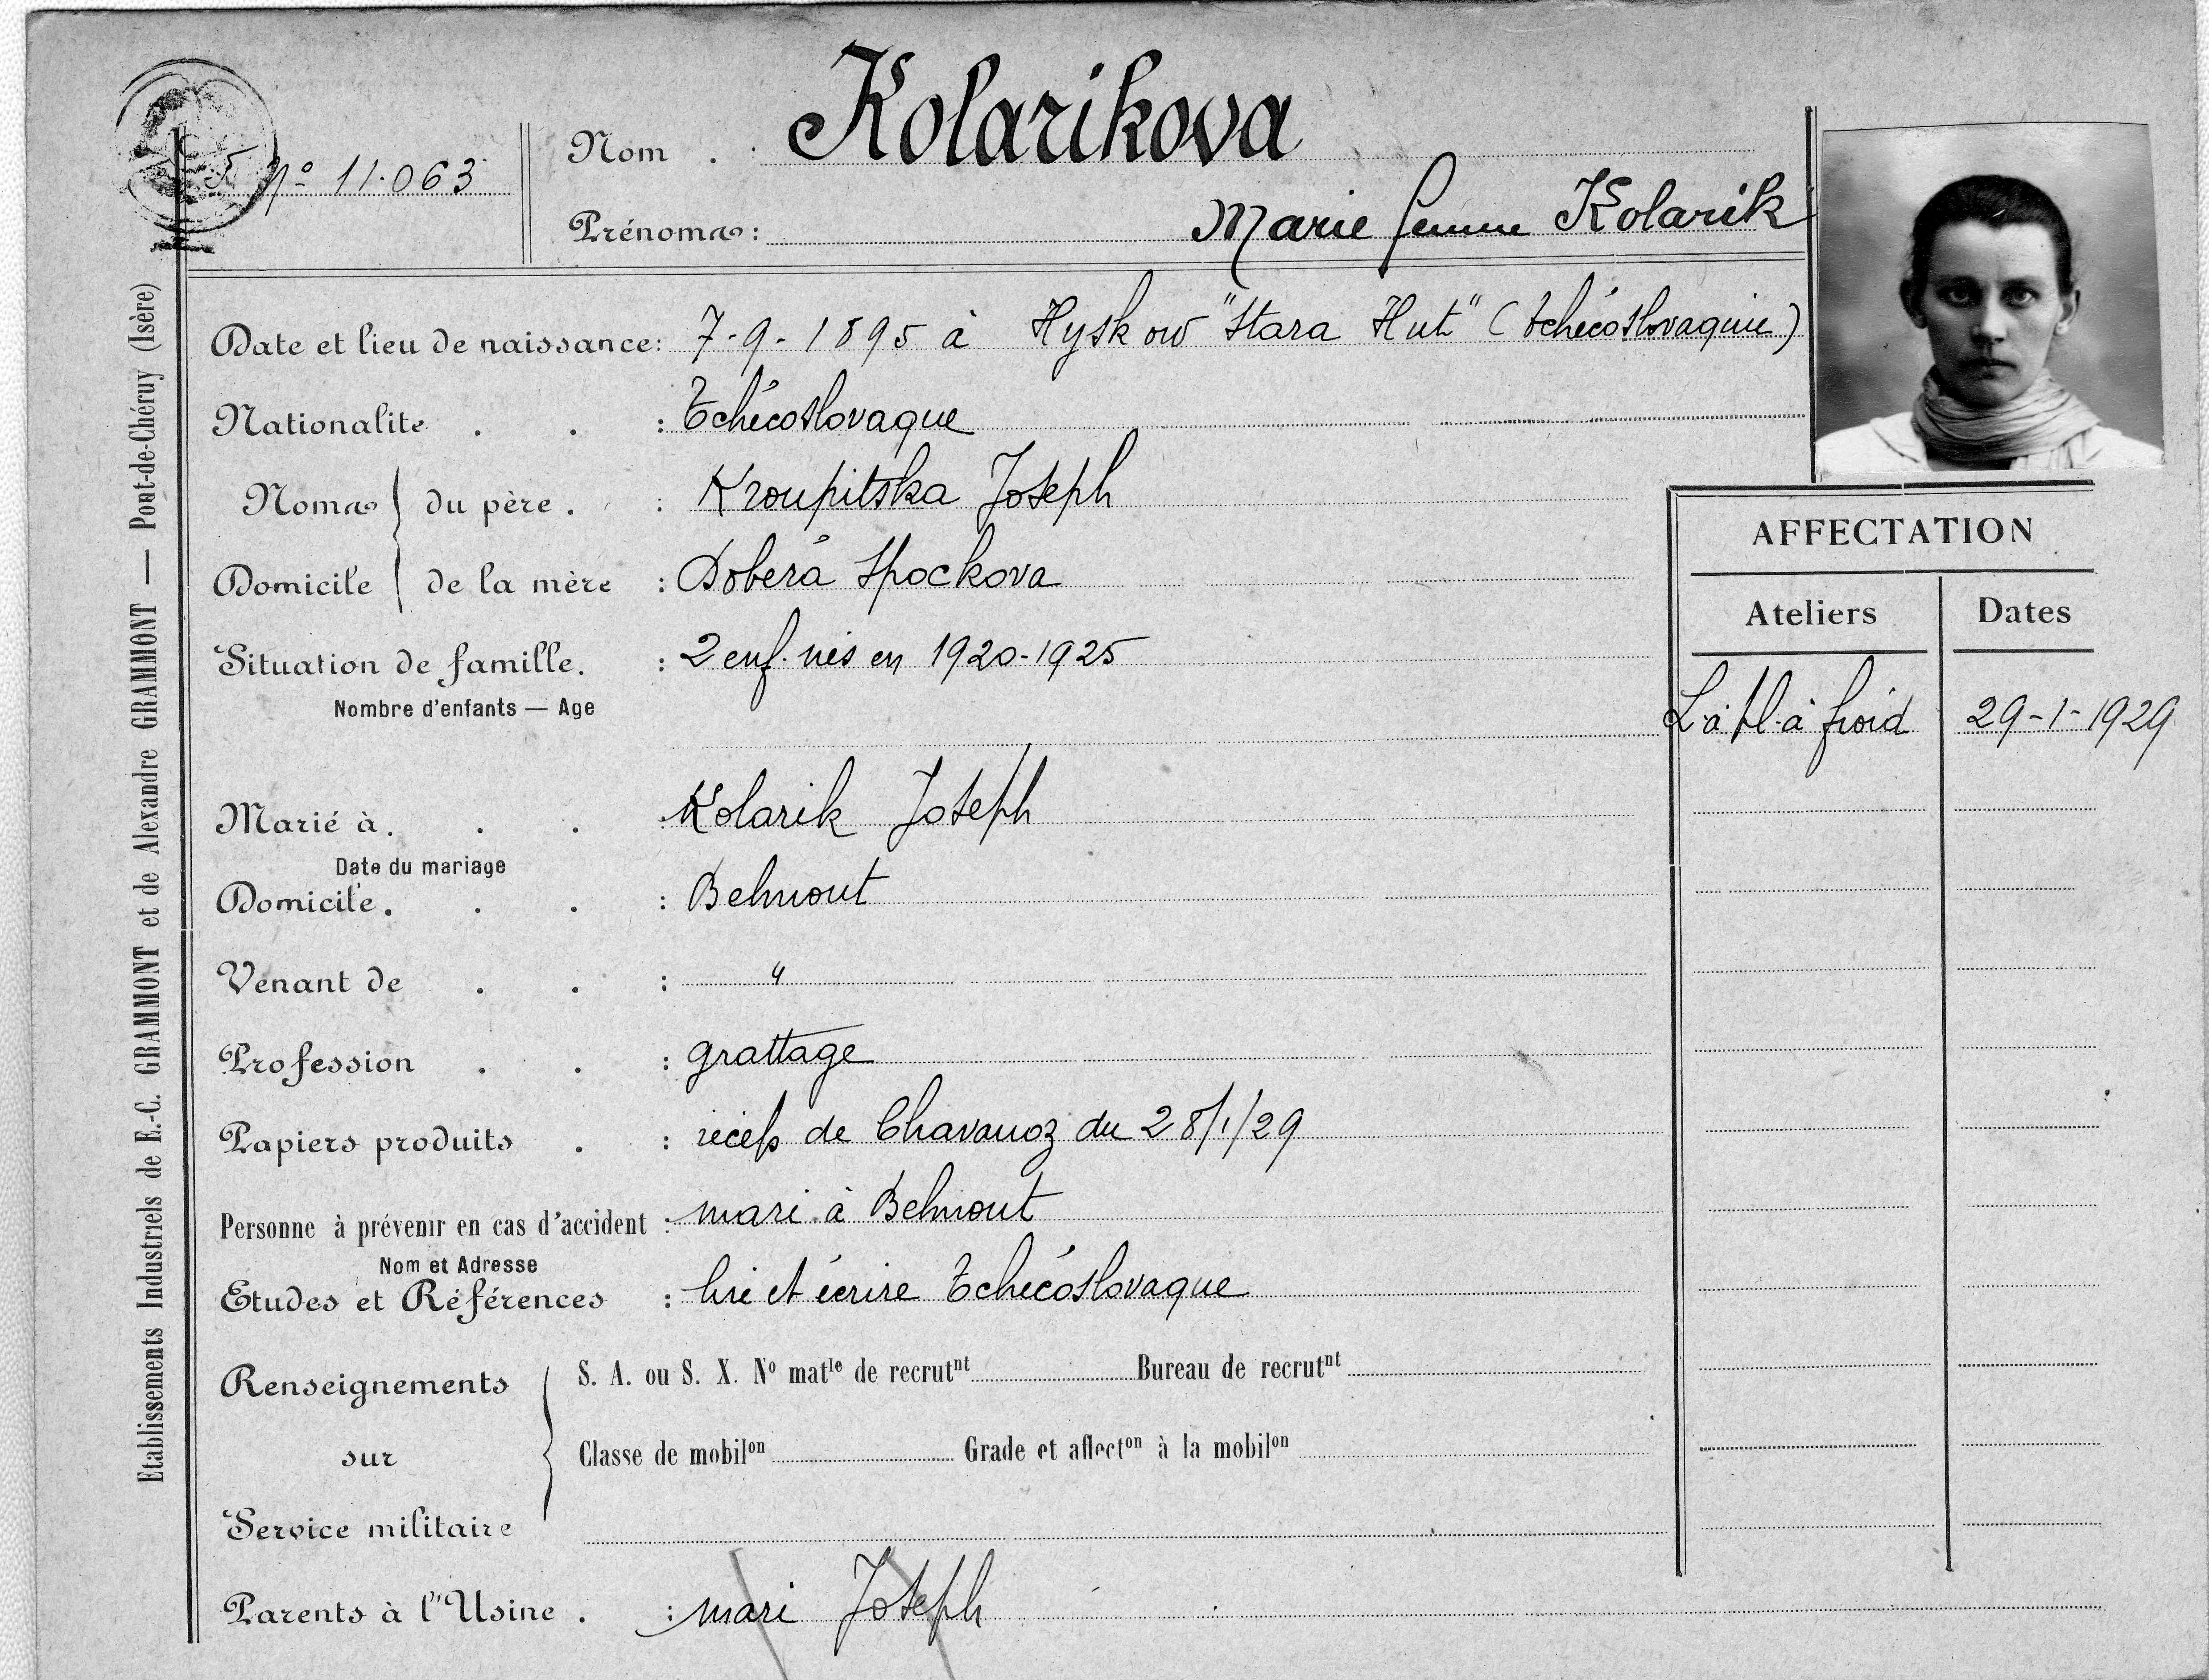 Nº 11.063
Nom . . Kolarikova
Prénoms: Marie femme Kolarik
Date et lieu de naissance: 7-9-1895 à Hyskow "Stara Hut" (Tchécoslovaquie)
Nationalite . . : Tchécoslovaque
Noms du père . : Kroupitska Joseph
Domicile de la mère : Dobera Spockova
Situation de famille. : 2 enf. nés en 1920-1925
Nombre d'enfants — Age
Marié à. . . : Kolarik Joseph
Date du mariage
Domicile. . . : Belmont
Venant de . . : "
Profession . . : grattage
Papiers produits . : récép de Chavanoz du 28/1/29
Personne à prévenir en cas d'accident : mari à Belmont
Nom et Adresse
Etudes et Références : lire et écrire Tchécoslovaque
Renseignements sur Service militaire
S. A. ou S. X. Nº matle de recrutnt Bureau de recrutnt
Classe de mobilon Grade et affecton à la mobilon
Parents à l'Usine . : mari Joseph
AFFECTATION
Ateliers Dates
L. à fl. à froid 29-1-1929
Etablissements Industriels de E.-C. GRAMMONT et de Alexandre GRAMMONT — Pont-de-Chéruy (Isère)